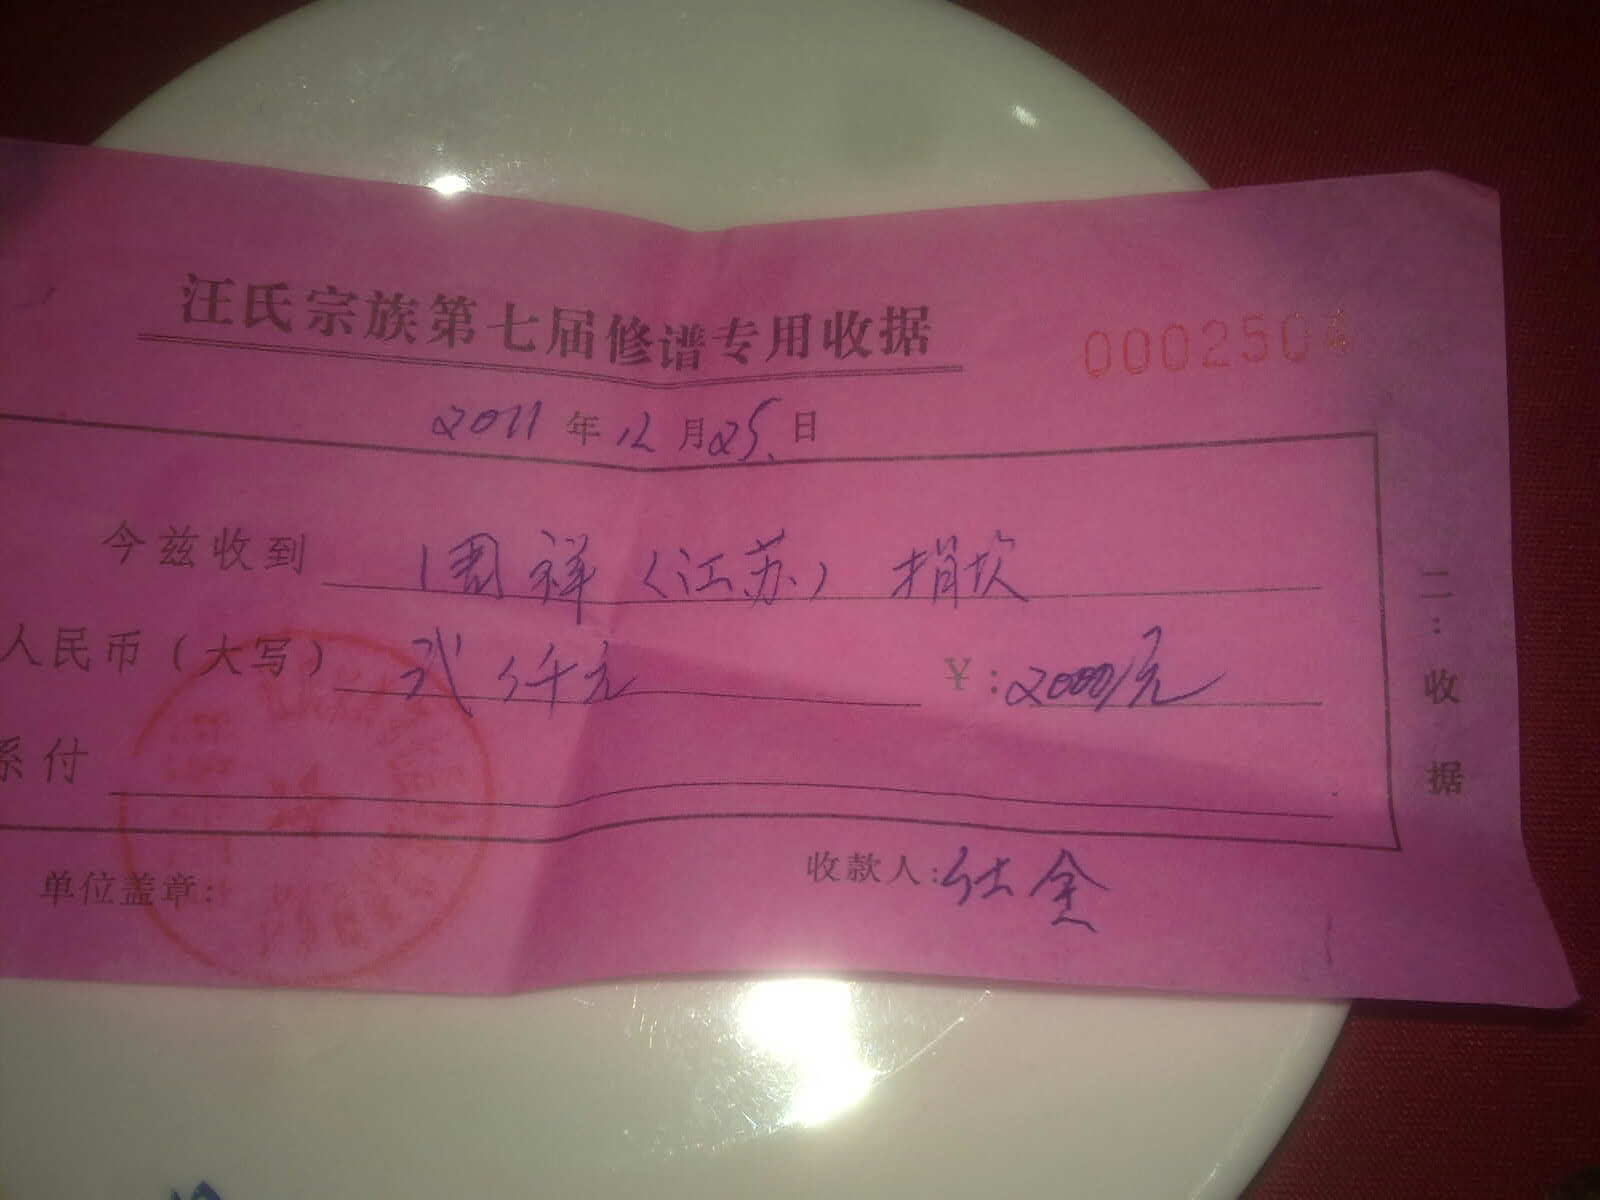 汪氏宗族第七届修谱专用收据
2011年12月25日
今兹收到 国祥（江苏）捐款
人民币（大写） 贰仟元 ¥：2000元
系付
单位盖章： 收款人：仕金
二：收据